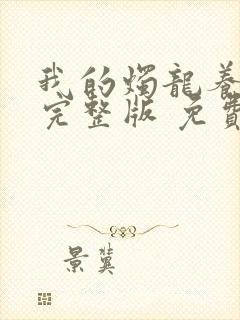 我的燭龍養
完整版 免費
景冀